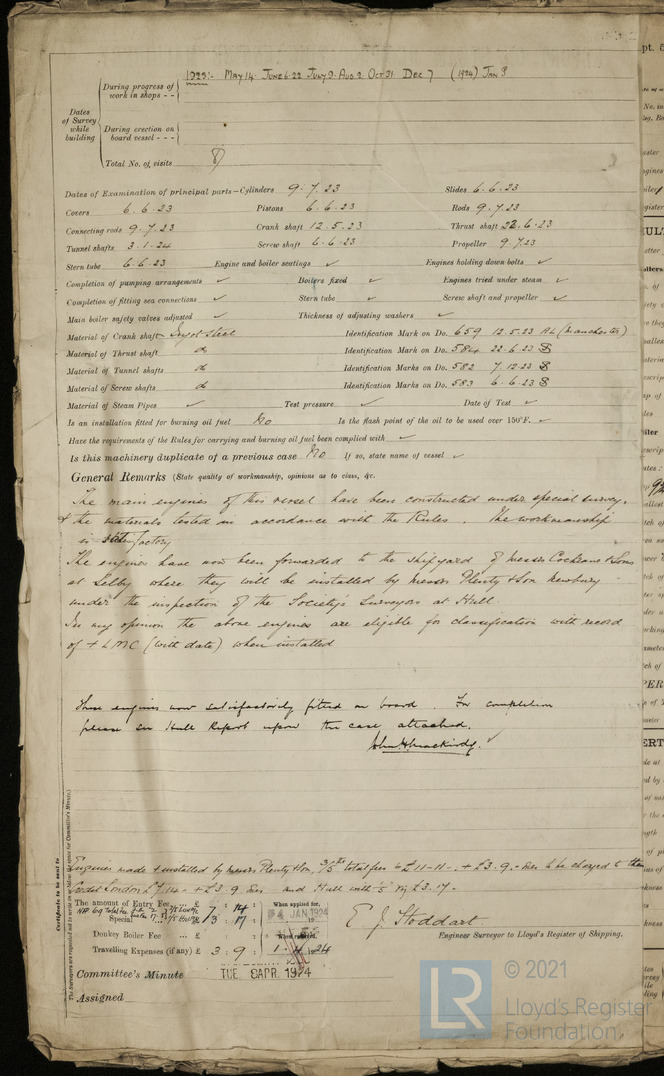 1923:- MAY 14 JUNE 6.22 JULY 9 AUG 2 OCT 31 DEC 7 (1924) JAN 3
During progress of work in shops - -
Dates of Survey while building
During erection on board vessel - - -
Total No. of visits 8
Dates of Examination of principal parts—Cylinders 9.7.23 Slides 6.6.23
Covers 6.6.23 Pistons 6.6.23 Rods 9.7.23
Connecting rods 9.7.23 Crank shaft 12.5.23 Thrust shaft 22.6.23
Tunnel shafts 3.1.24 Screw shaft 6.6.23 Propeller 9.7.23
Stern tube 6.6.23 Engine and boiler seatings ✓ Engines holding down bolts ✓
Completion of pumping arrangements ✓ Boilers fixed ✓ Engines tried under steam ✓
Completion of fitting sea connections ✓ Stern tube ✓ Screw shaft and propeller ✓
Main boiler safety valves adjusted ✓ Thickness of adjusting washers ✓
Material of Crank shaft Ingot Steel Identification Mark on Do. 659 12.5.23 AL (Manchester)
Material of Thrust shaft do Identification Mark on Do. 584 22.6.23
Material of Tunnel shafts do Identification Marks on Do. 582 7.12.23
Material of Screw shafts do Identification Marks on Do. 583 6.6.23
Material of Steam Pipes ✓ Test pressure ✓ Date of Test ✓
Is an installation fitted for burning oil fuel No Is the flash point of the oil to be used over 150°F. ✓
Have the requirements of the Rules for carrying and burning oil fuel been complied with ✓
Is this machinery duplicate of a previous case No If so, state name of vessel ✓
General Remarks (State quality of workmanship, opinions as to class, &c.
The main engines of this vessel have been constructed under special survey,
& the materials tested in accordance with the Rules. The workmanship
is satisfactory
The engines have now been forwarded to the shipyard of Messrs Cochrane & Sons
at Selby where they will be installed by Messrs Plenty & Son Newbury
under the inspection of the Society's Surveyors at Hull.
In my opinion the above engines are eligible for classification with record
of + LMC (with date) when installed
These engines now satisfactorily fitted on board. For completion
please see Hull Report upon the case attached.
Engines made & installed by Messrs Plenty & Son, 3/5 total fees = £11-11-. + £3.9.- exes to be charged to them
Credit London £7.14.- + £3.9. exes and Hull with £3.17.-
The amount of Entry Fee ... £ 7 : 14
Special ... £ 3 : 17
Donkey Boiler Fee ... £
Travelling Expenses (if any) £ 3 : 9 :
When applied for,
4 JAN 1924
When received,
1.4.24
E J Stoddart
Engineer Surveyor to Lloyd's Register of Shipping.
Committee's Minute TUE. 8 APR. 1924
Assigned
Certificate to be sent to
(The Surveyors are requested not to write on or below the space for Committee's Minute.)
© 2021
Lloyd's Register
Foundation
LR